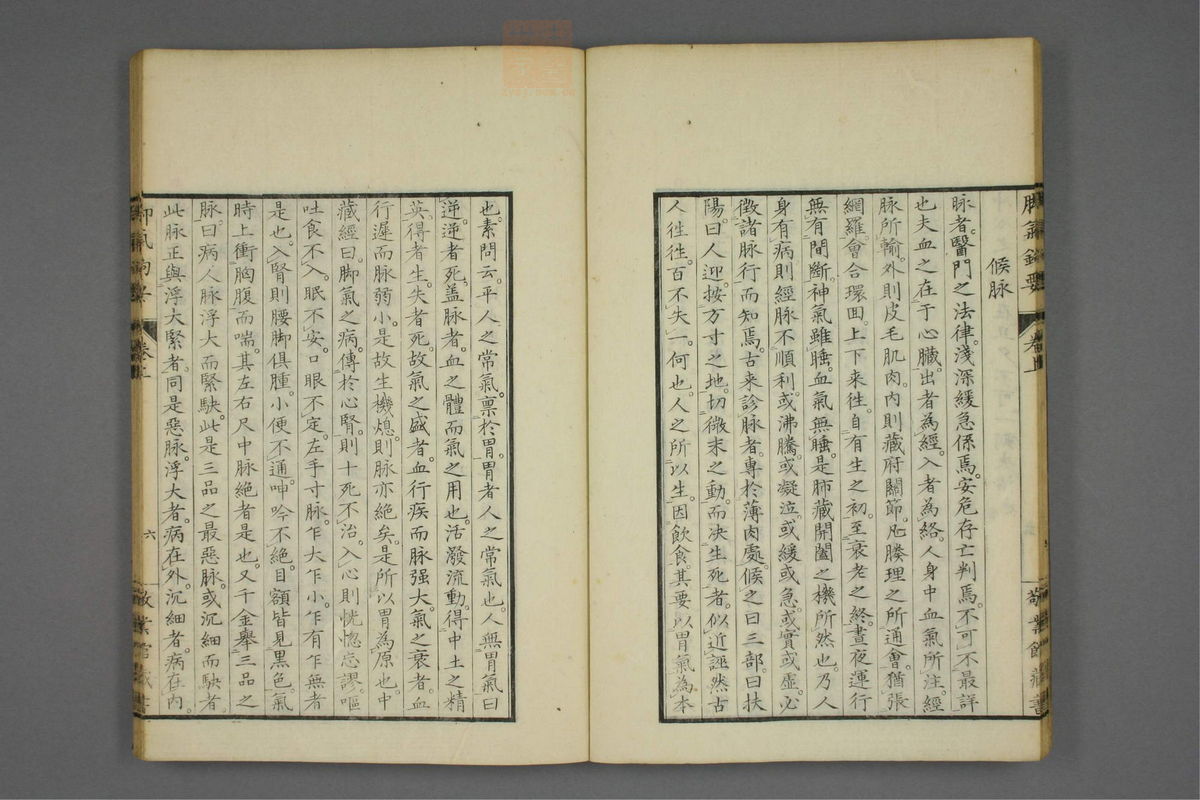 脚氣鉤要 卷上 敬業館藏書
候脉
脉者。醫門之法律。淺深緩急係焉。安危存亡判焉。不可不最詳
也。夫血之在于心臓。出者為經。入者為絡。人身中血氣所注。經
脉所輸。外則皮毛肌肉。内則藏府關節。凡腠理之所通會。猶張
網羅會合環回。上下来往。自有生之初。至衰老之終。晝夜運行
無有間斷。神氣雖睡。血氣無睡。是肺藏開闔之機所然也。乃人
身有病則經脉不順利。或沸騰。或凝泣。或緩或急。或實或虚。必
徴諸脉行而知焉。古来診脉者。專於薄肉處。候之曰三部。曰扶
陽。曰人迎。按方寸之地。切微末之動。而决生死者。似近誣。然古
人徃徃百不失一。何也。人之所以生。因飲食。其要以胃氣為本
也。素問云。平人之常氣。禀於胃。胃者人之常氣也。人無胃氣曰
逆。逆者死。盖脉者。血之體而氣之用也。活潑流動。得中土之精
英。得者生。失者死。故氣之盛者。血行疾而脉强大。氣之衰者。血
行遲而脉弱小。是故生機熄。則脉亦絕矣。是所以胃為原也。中
藏經曰。脚氣之病。傳於心腎。則十死不治。入心則恍惚忘謬。嘔
吐食不入。眠不安。口眼不定。左手寸脉。乍大乍小。乍有乍無者
是也。入腎則腰脚俱腫。小便不通。呻吟不絕。目額皆見黒色。氣
時上衝胸腹而喘。其左右尺中脉絕者是也。又千金舉三品之
脉。曰病人脉浮大而緊駃。此是三品之最惡脉。或沉細而駃者。
此脉正與浮大緊者。同是惡脉。浮大者。病在外。沉細者。病在内。
脚氣鉤要 卷上 六 敬業館藏書